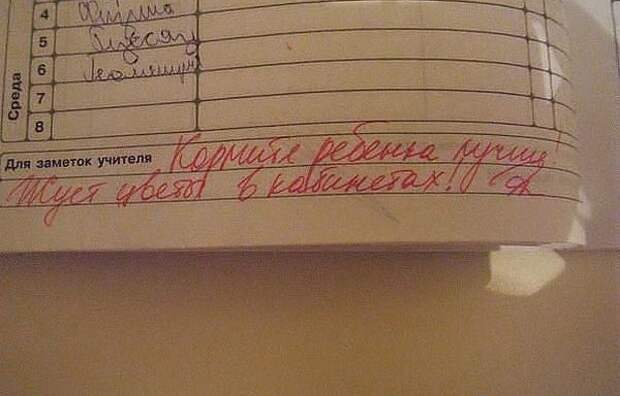 Среда
4 Физика
5 Русский
6
7
8
Для заметок учителя Кормите ребенка лучше!
Жует цветы в кабинетах!